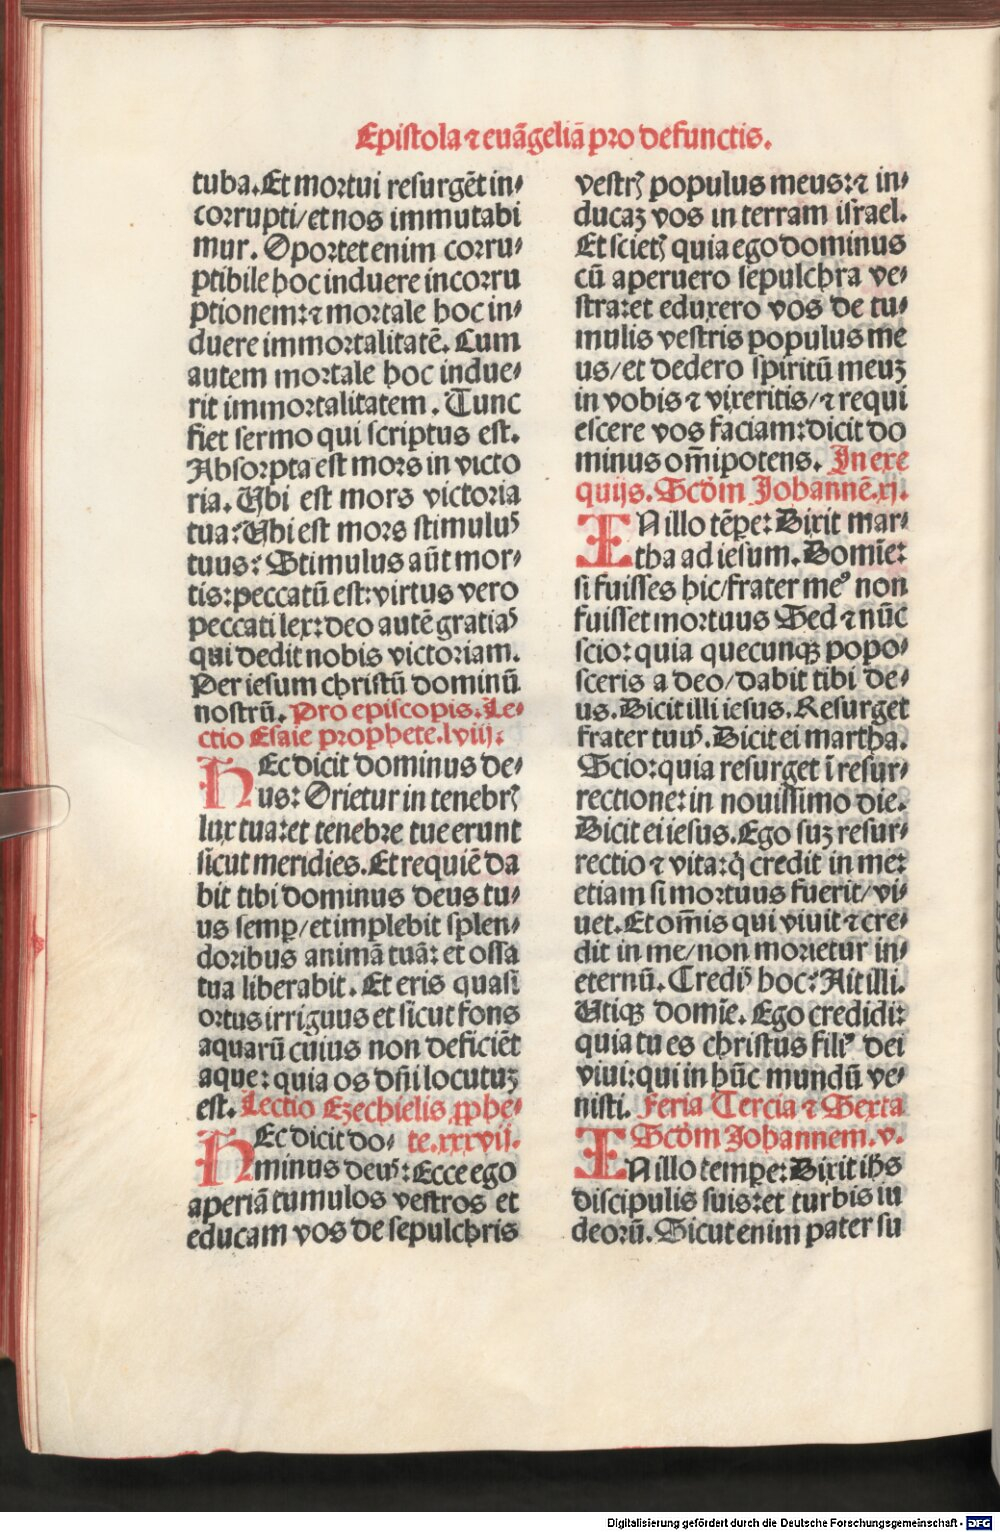 Epistola ⁊ euāgeliā pro defunctis.
tuba. Et mortui resurgēt in⸗
corrupti/ et nos immutabi
mur. Oportet enim corru⸗
ptibile hoc induere incorru
ptionem: ⁊ mortale hoc in⸗
duere immortalitatē. Cum
autem mortale hoc indue⸗
rit immortalitatem. Tunc
fiet sermo qui scriptus est.
Absorpta est mors in victo
ria. Ubi est mors victoria
tua? Ubi est mors stimulꝰ
tuus? Stimulus aūt mor⸗
tis: peccatū est: virtus vero
peccati lex: deo autē gratiaꝰ
qui dedit nobis victoriam.
Per iesum christū dominū
nostrū. Pro episcopis. Le⸗
ctio Esaie prophete. lviij.
HEc dicit dominus de⸗
us: Orietur in tenebrꝭ
lux tua: et tenebre tue erunt
sicut meridies. Et requiē da
bit tibi dominus deus tu⸗
us semꝑ/ et implebit splen⸗
doribus animā tuā: et ossa
tua liberabit. Et eris quasi
ortus irriguus et sicut fons
aquarū cuius non deficiēt
aque: quia os dñi locutuꝫ
est. Lectio Ezechielis ꝓphe⸗
te. xxxvij.
HEc dicit do⸗
minus deꝰ: Ecce ego
aperiā tumulos vestros et
educam vos de sepulchris
vestrꝭ populus meus: ⁊ in⸗
ducaꝫ vos in terram israel.
Et scietꝭ quia ego dominus
cū aperuero sepulchra ve⸗
stra: et eduxero vos de tu⸗
mulis vestris populus me
us/ et dedero spiritū meuꝫ
in vobis ⁊ vixeritis/ ⁊ requi
escere vos faciam: dicit do
minus om̄ipotens. In exe
quijs. Scḋm Johannē. xj.
IN illo tēꝑe: Dixit mar⸗
tha ad iesum. Domīe:
si fuisses hic/ frater meꝰ non
fuisset mortuus Sed ⁊ nūc
scio: quia quecunqꝫ popo⸗
sceris a deo/ dabit tibi de⸗
us. Dicit illi iesus. Resurget
frater tuꝰ. Dicit ei martha.
Scio: quia resurget ī resur⸗
rectione: in nouissimo die.
Dicit ei iesus. Ego suꝫ resur⸗
rectio ⁊ vita: q̇ credit in me:
etiam si mortuus fuerit/ vi⸗
uet. Et om̄is qui viuit ⁊ cre⸗
dit in me/ non morietur in⸗
eternū. Credꝭ hoc? Ait illi.
Utiqꝫ domīe. Ego credidi:
quia tu es christus filiꝰ dei
viui: qui in hūc mundū ve⸗
nisti. Feria Tercia ⁊ Sexta
Scḋm Johannem. v.
IN illo temꝑe: Dixit ih̄s
discipulis suis: et turbis iu
deorū. Sicut enim pater su
Digitalisierung gefördert durch die Deutsche Forschungsgemeinschaft - DFG